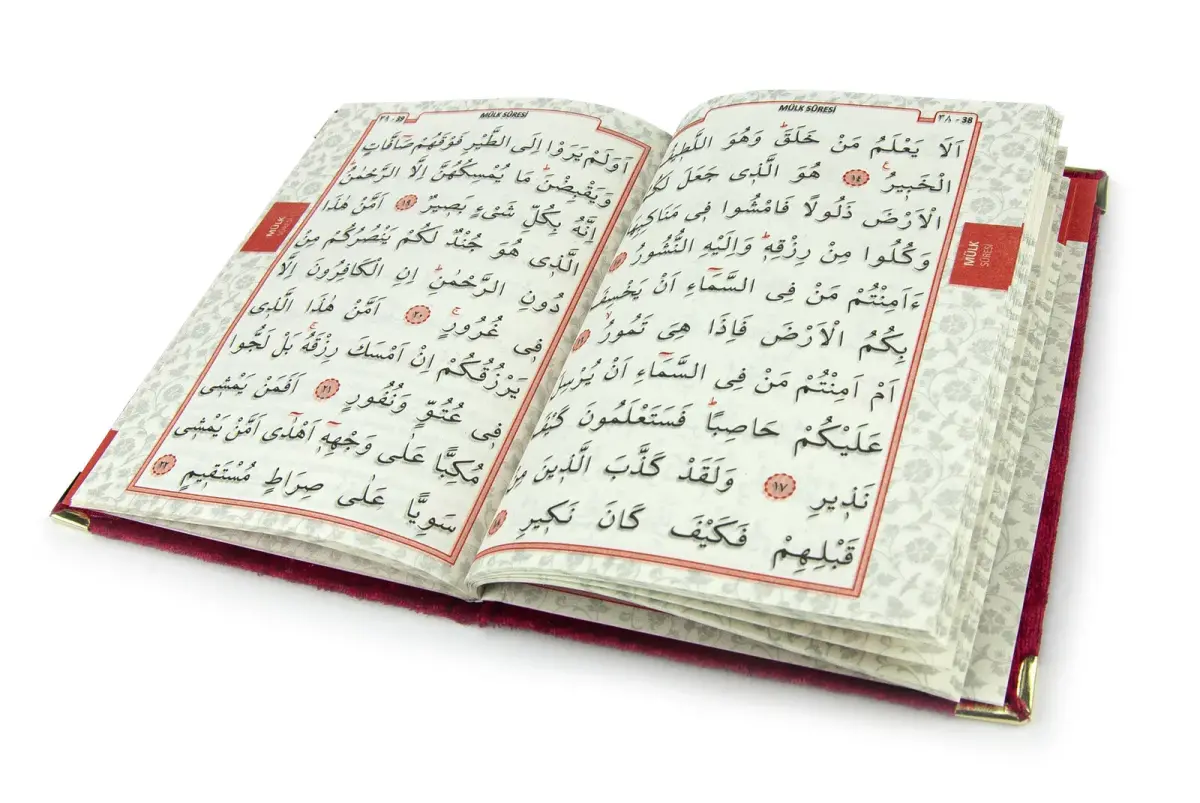 MÜLK SÛRESİ ٣٨ - 38
اَلَا يَعْلَمُ مَنْ خَلَقَۜ وَهُوَ اللَّط۪يفُ
الْخَب۪يرُ ١٤ هُوَ الَّذ۪ي جَعَلَ لَكُمُ
الْاَرْضَ ذَلُولًا فَامْشُوا ف۪ي مَنَاكِبِهَا
وَكُلُوا مِنْ رِزْقِه۪ۜ وَاِلَيْهِ النُّشُورُ
ءَاَمِنْتُمْ مَنْ فِي السَّمَٓاءِ اَنْ يَخْسِفَ
بِكُمُ الْاَرْضَ فَاِذَا هِيَ تَمُورُ
اَمْ اَمِنْتُمْ مَنْ فِي السَّمَٓاءِ اَنْ يُرْسِلَ
عَلَيْكُمْ حَاصِبًاۜ فَسَتَعْلَمُونَ كَيْفَ
نَذ۪يرِ ١٧ وَلَقَدْ كَذَّبَ الَّذ۪ينَ مِنْ
قَبْلِهِمْ فَكَيْفَ كَانَ نَك۪يرِ
MÜLK
SÛRESİ
٣٩ - 39 MÜLK SÛRESİ
اَوَلَمْ يَرَوْا اِلَى الطَّيْرِ فَوْقَهُمْ صَٓافَّاتٍ
وَيَقْبِضْنَۜ مَا يُمْسِكُهُنَّ اِلَّا الرَّحْمٰنُۜ
اِنَّهُ بِكُلِّ شَيْءٍ بَص۪يرٌ ١٩ اَمَّنْ هٰذَا
الَّذ۪ي هُوَ جُنْدٌ لَكُمْ يَنْصُرُكُمْ مِنْ
دُونِ الرَّحْمٰنِۜ اِنِ الْكَافِرُونَ اِلَّا
ف۪ي غُرُورٍۚ ٢٠ اَمَّنْ هٰذَا الَّذ۪ي
يَرْزُقُكُمْ اِنْ اَمْسَكَ رِزْقَهُۚ بَلْ لَجُّوا
ف۪ي عُتُوٍّ وَنُفُورٍ ٢١ اَفَمَنْ يَمْش۪ي
مُكِبًّا عَلٰى وَجْهِه۪ٓ اَهْدٰٓى اَمَّنْ يَمْش۪ي
سَوِيًّا عَلٰى صِرَاطٍ مُسْتَق۪يمٍ ٢٢
MÜLK
SÛRESİ